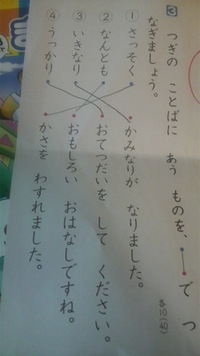 3 つぎの ことばに あう ものを、 で つ
なぎましょう。
各10(40)
① さっそく
② なんとも
③ いきなり
④ うっかり
かみなりが なりました。
おてつだいを して ください。
おもしろい おはなしですね。
かさを わすれました。